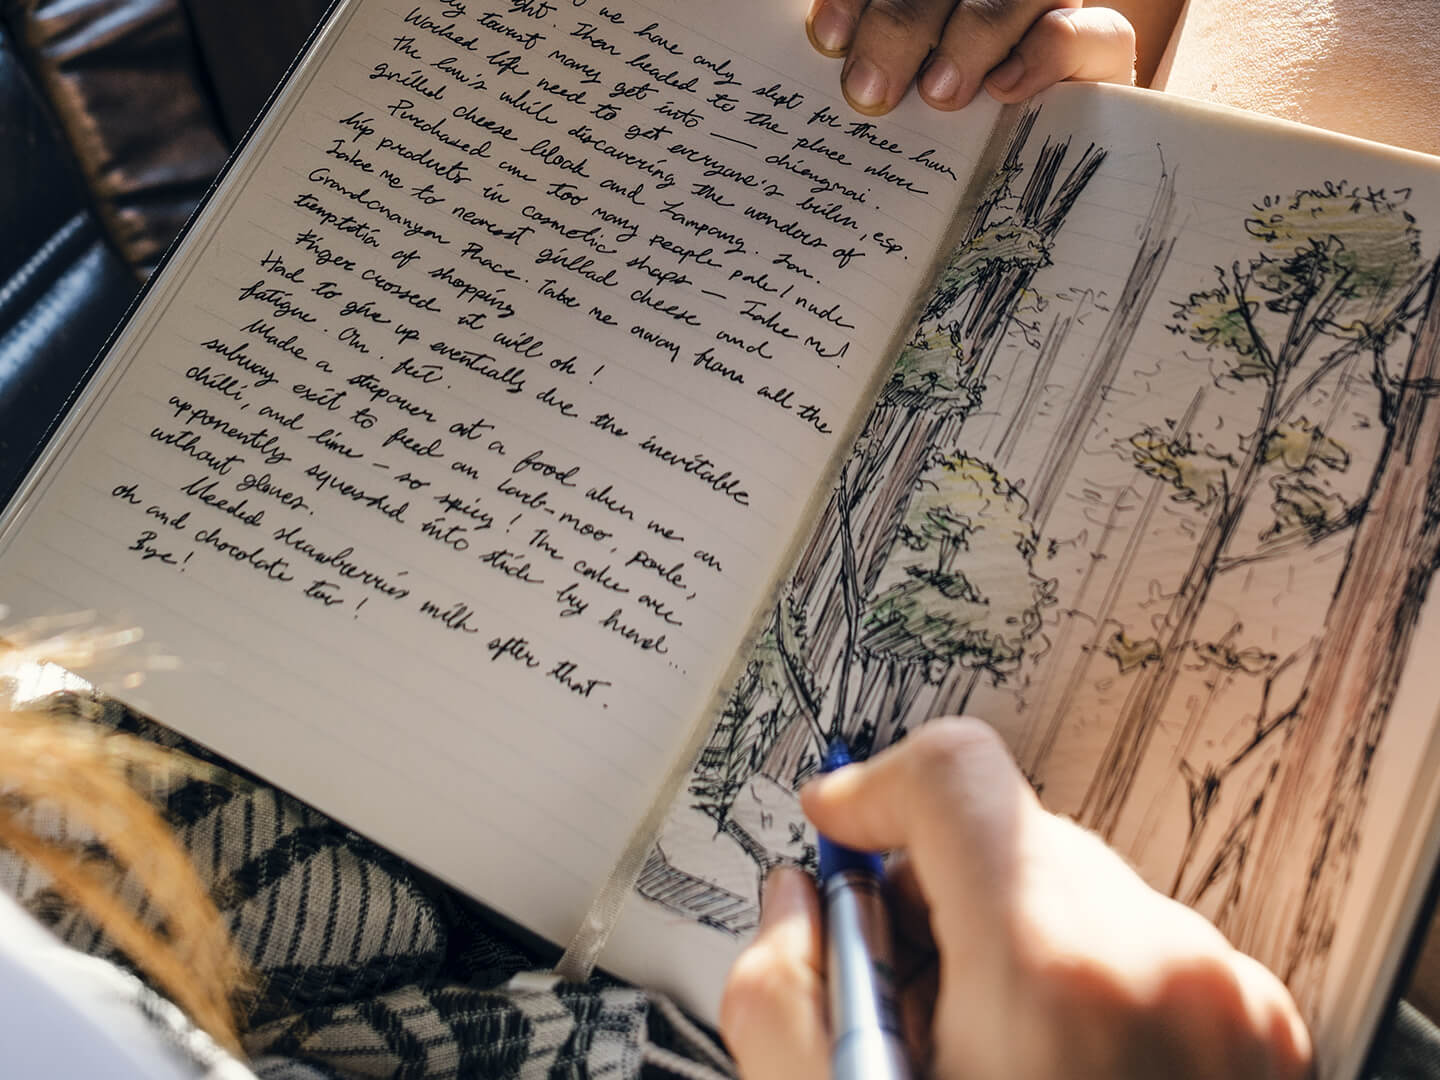 we have only slept for three hours
ght. Then headed to the place where
ly tourist money get into — chiangmai.
Worked life need to get everyone's
the law's while discovering the wonders of
grilled cheese block and Lampang.
Purchased one too many people pale / nude
lip products in cosmetic shops — Take me!
Take me to nearest grillad cheese and
Place. Take me away from all the
temptatio of shopping
Finger crossed it will oh!
Had to give up eventually due the inevitable
fatigue. On. feet.
Made a stopover at a food when we an
subway exit to feed on larb-moo,
chilli, and lime - so spicy! The cake are
apponently squashed into stick by hand...
without gloves.
Needed strawberries milk after that.
oh and chocolate too!
Bye!